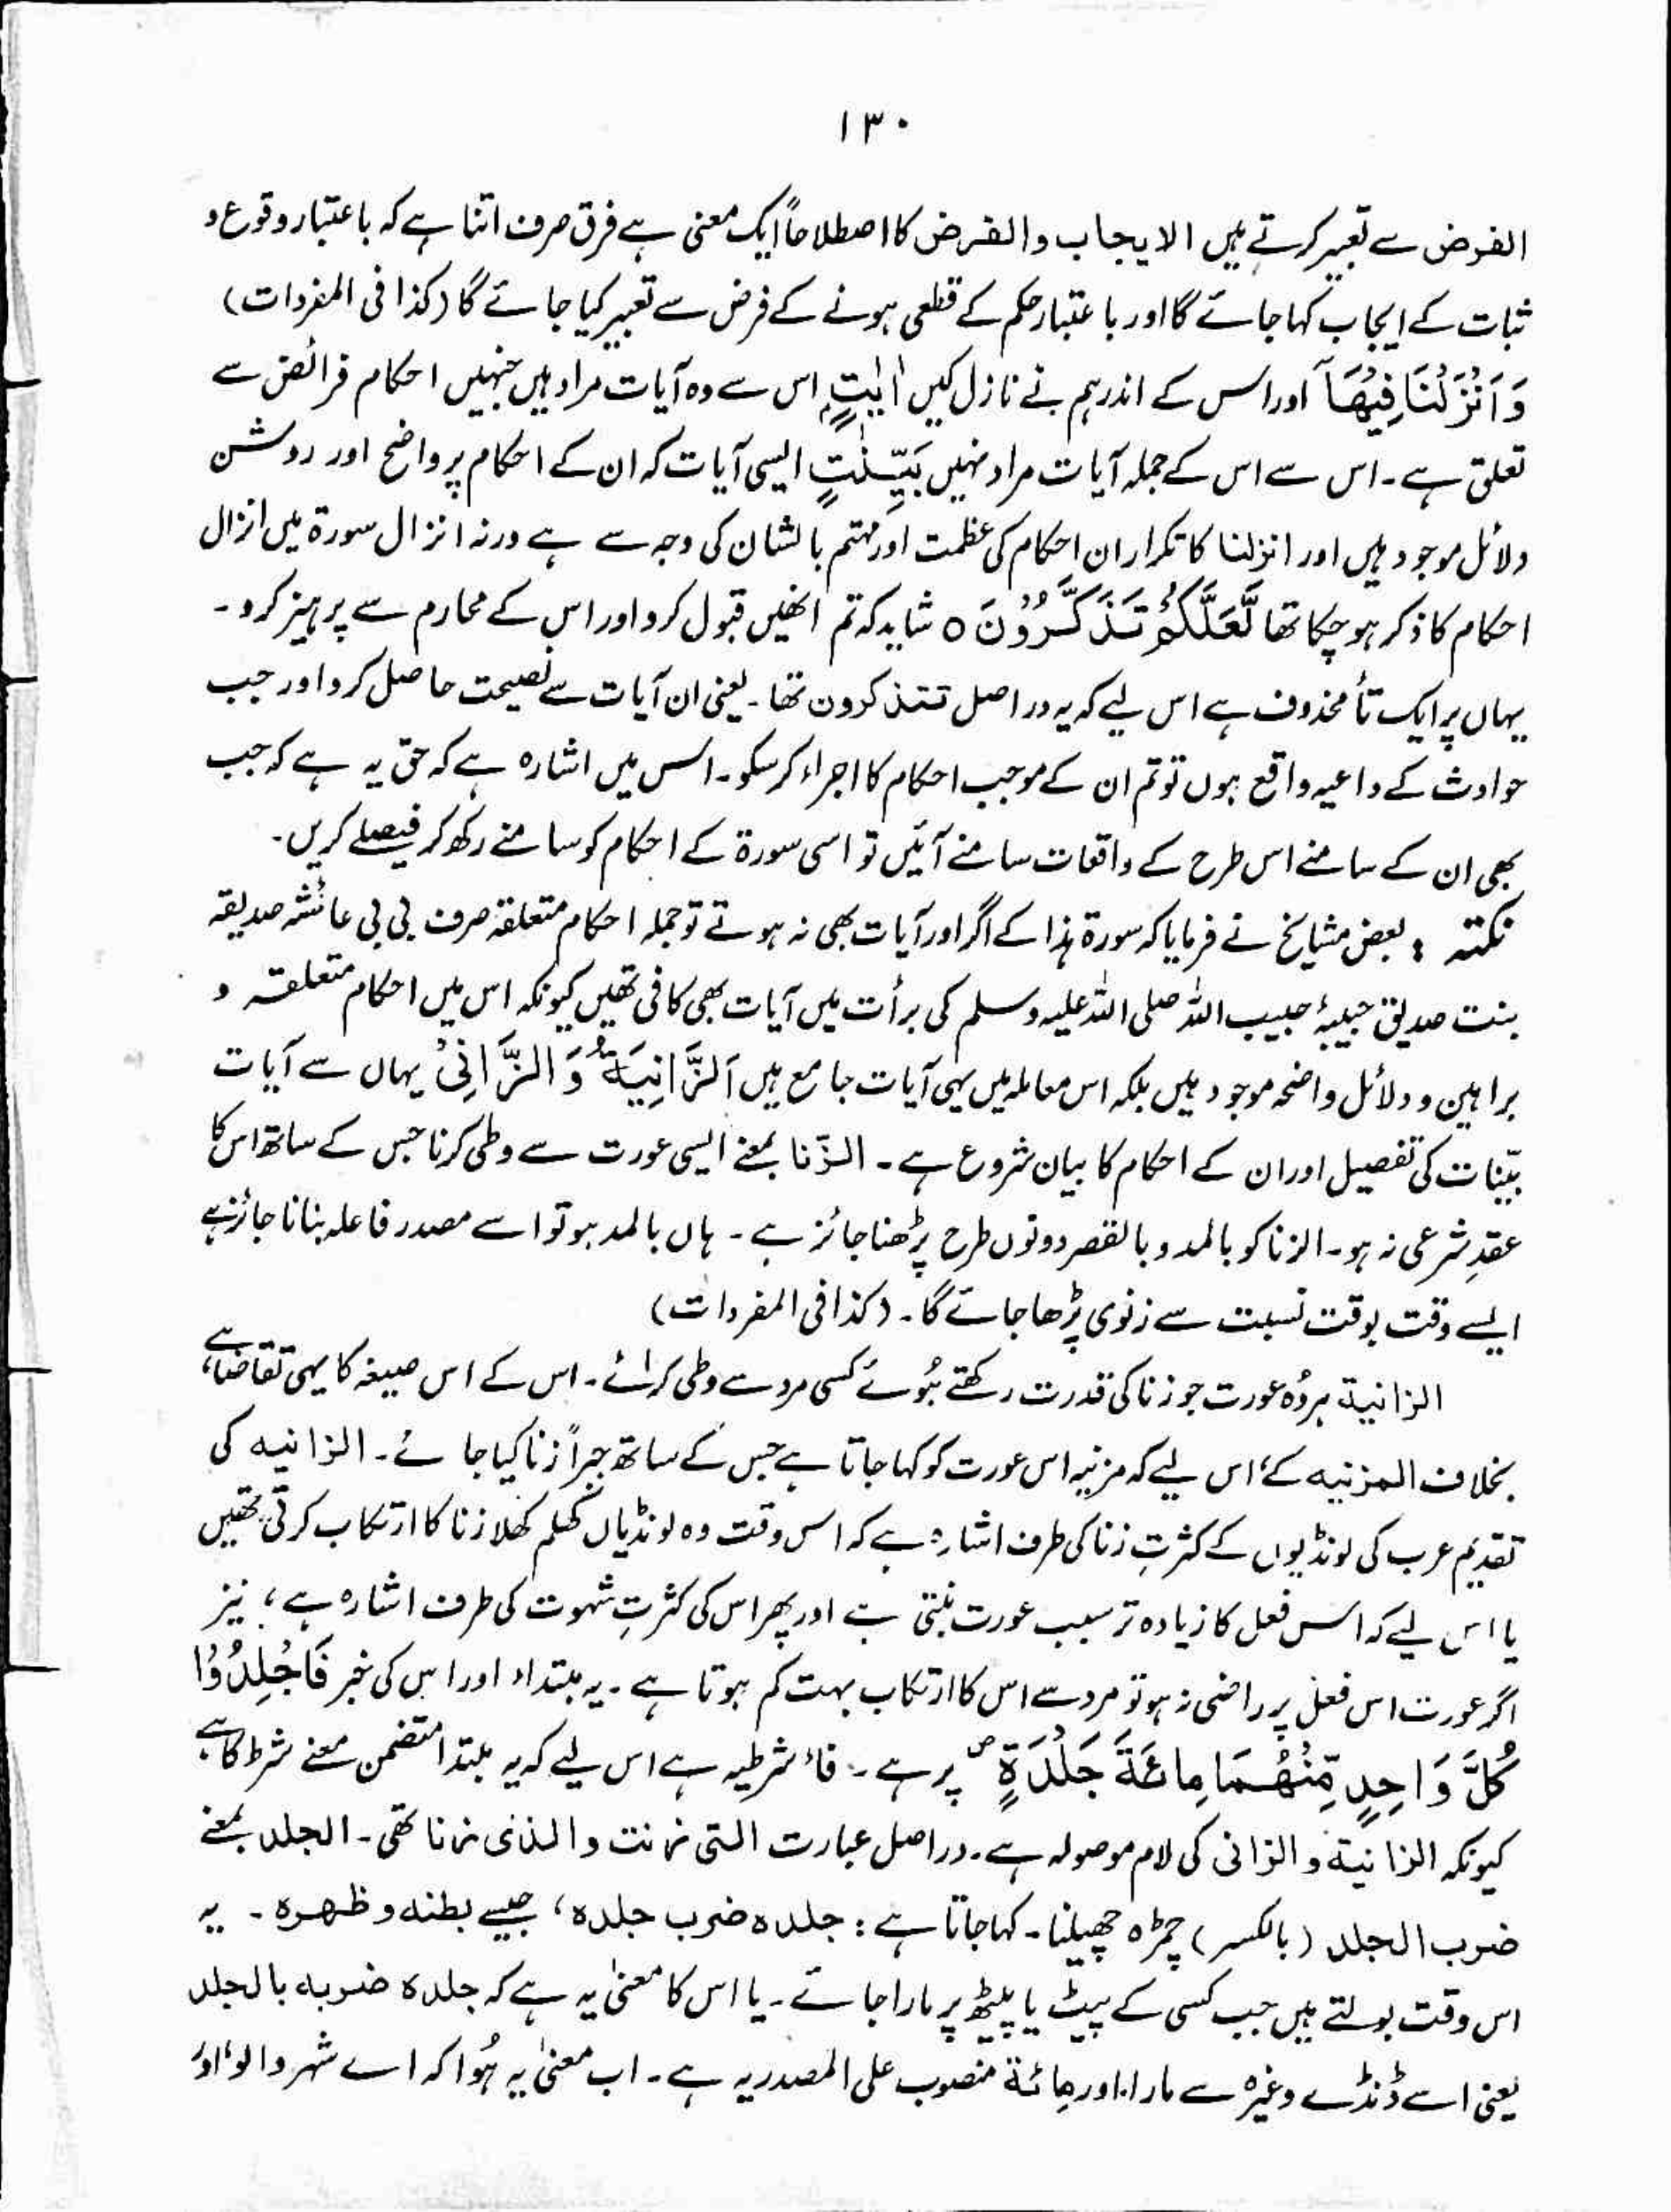 ۱۳۰
الفرض سے تعبیر کرتے ہیں الایجاب والفرض کا اصطلاحاً ایک معنی ہے فرق صرف اتنا ہے کہ باعتبار وقوع و
ثبات کے ایجاب کہا جائے گا اور باعتبار حکم کے قطعی ہونے کے فرض سے تعبیر کیا جائے گا (کذا فی المفردات)
وَ اَنْزَلْنَا فِیْهَاۤ اور اس کے اندر ہم نے نازل کیں اٰیٰتٍۭ اس سے وہ آیات مراد ہیں جنہیں احکام فرائض سے
تعلق ہے۔ اس سے اس کے جملہ آیات مراد نہیں بَیِّنٰتٍ ایسی آیات کہ ان کے احکام پر واضح اور روشن
دلائل موجود ہیں اور انزلنا کا تکرار ان احکام کی عظمت اور مہتم بالشان کی وجہ سے ہے ورنہ انزال سورۃ میں انزال
احکام کا ذکر ہو چکا تھا لَّعَلَّكُمْ تَذَكَّرُوْنَ ○ شاید کہ تم انھیں قبول کرو اور اس کے محارم سے پرہیز کرو۔
یہاں پر ایک تأ محذوف ہے اس لیے کہ یہ در اصل تتذکرون تھا۔ یعنی ان آیات سے نصیحت حاصل کرو اور جب
حوادث کے داعیہ واقع ہوں تو تم ان کے موجب احکام کا اجراء کر سکو۔ اس میں اشارہ ہے کہ حق یہ ہے کہ جب
بھی ان کے سامنے اس طرح کے واقعات سامنے آئیں تو اسی سورۃ کے احکام کو سامنے رکھ کر فیصلے کریں۔
نکتہ : بعض مشایخ نے فرمایا کہ سورۃ ہذا کے اگر اور آیات بھی نہ ہوتے تو جملہ احکام متعلقہ صرف بی بی عائشہ صدیقہ
بنت صدیق حبیبۂ حبیب اللہ صلی اللہ علیہ وسلم کی برأت میں آیات بھی کافی تھیں کیونکہ اس میں احکام متعلقہ و
براہین و دلائل واضحہ موجود ہیں بلکہ اس معاملہ میں یہی آیات جامع ہیں اَلزَّانِیَةُ وَ الزَّانِیْ یہاں سے آیات
بیّنات کی تفصیل اور ان کے احکام کا بیان شروع ہے۔ الزّنا بمعنے ایسی عورت سے وطی کرنا جس کے ساتھ اس کا
عقدِ شرعی نہ ہو۔ الزنا کو بالمد و بالقصر دونوں طرح پڑھنا جائز ہے۔ ہاں بالمد ہو تو اسے مصدر فاعلہ بنانا جائز ہے
ایسے وقت بوقت نسبت سے زنوی پڑھا جائے گا۔ (کذا فی المفردات)
الزانیة ہر وُہ عورت جو زنا کی قدرت رکھتے ہُوئے کسی مرد سے وطی کرائے۔ اس کے اس صیغہ کا یہی تقاضا ہے،
بخلاف المزنیه کے، اس لیے کہ مزنیہ اس عورت کو کہا جاتا ہے جس کے ساتھ جبراً زنا کیا جائے۔ الزانیه کی
تقدیم عرب کی لونڈیوں کے کثرتِ زنا کی طرف اشارہ ہے کہ اس وقت وہ لونڈیاں کھلم کھلا زنا کا ارتکاب کرتی تھیں
یا اس لیے کہ اس فعل کا زیادہ تر سبب عورت بنتی ہے اور پھر اس کی کثرتِ شہوت کی طرف اشارہ ہے؛ نیز
اگر عورت اس فعل پر راضی نہ ہو تو مرد سے اس کا ارتکاب بہت کم ہوتا ہے۔ یہ مبتداء اور اس کی خبر فَاجْلِدُوْا
كُلَّ وَاحِدٍ مِّنْهُمَا مِائَةَ جَلْدَةٍ ص پر ہے۔ فاء شرطیہ ہے اس لیے کہ یہ مبتدا متضمن معنے شرط کا ہے
کیونکہ الزانیة و الزانی کی لام موصولہ ہے۔ دراصل عبارت التی زنت والذی زنا تھی۔ الجلد بمعنے
ضرب الجلد (بالکسر) چمڑہ چھیلنا۔ کہا جاتا ہے : جلده ضرب جلده، جیسے بطنه و ظهره۔ یہ
اس وقت بولتے ہیں جب کسی کے پیٹ یا پیٹھ پر مارا جائے۔ یا اس کا معنیٰ یہ ہے کہ جلدہ ضربہ بالجلد
یعنی اسے ڈنڈے وغیرہ سے مارا۔ اور مِائة منصوب علی المصدریہ ہے۔ اب معنیٰ یہ ہُوا کہ اے شہر والو، اور